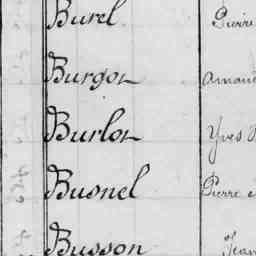 Burel Pierre
Burgot
Burlot Yves
Busnel Pierre
Busson Jean